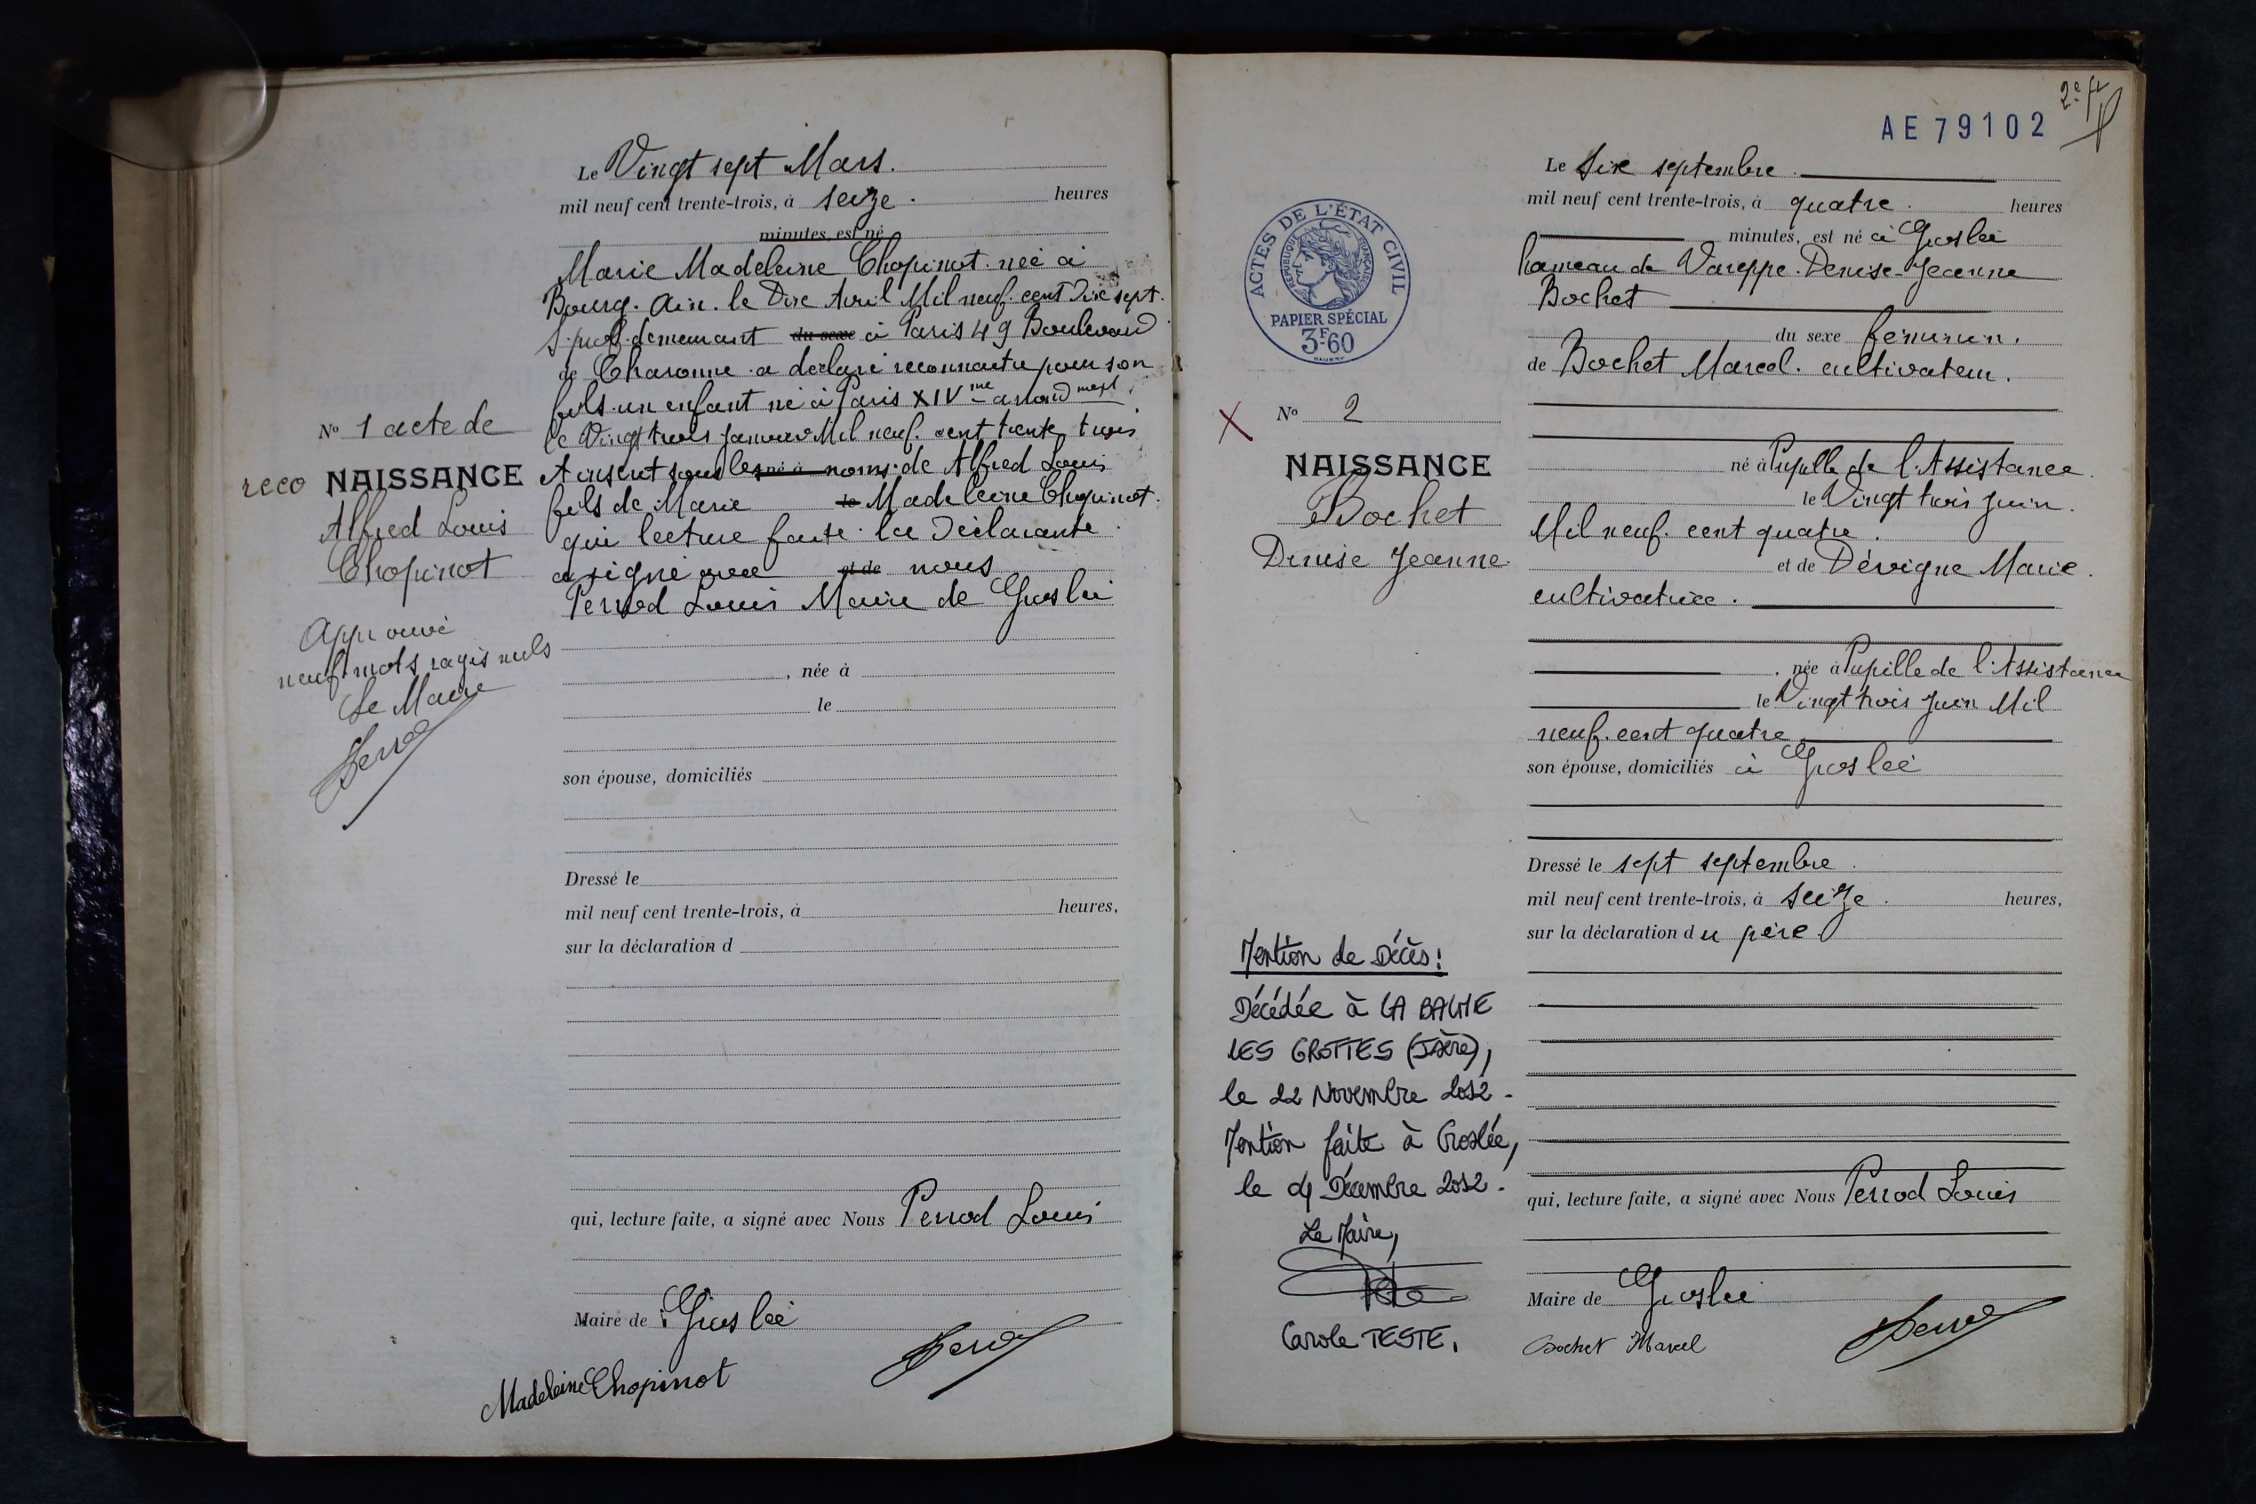 Le Vingt sept Mars.
mil neuf cent trente-trois, à seize. heures
minutes, est né
Marie Madeleine Chopinot née à
Bourg. Ain. le Dix Avril Mil neuf. cent Dix sept.
S. prof. demeurant du sexe à Paris 49 Boulevard
de Charonne a déclaré reconnaitre pour son
fils un enfant né à Paris XIVme arrondmext.
le Vingt trois Janvier Mil neuf. cent trente trois
et inscrit sous les né à noms de Alfred Louis
fils de Marie le Madeleine Chopinot.
qui lecture faite la Déclarante
a signé avec et de nous
Perrod Louis Maire de Groslée
No 1 acte de
reco NAISSANCE
Alfred Louis
Chopinot
Approuvé
neuf mots rayés nuls
Le Maire
Perrod
, née à
le
son épouse, domiciliés
Dressé le
mil neuf cent trente-trois, à heures,
sur la déclaration d
qui, lecture faite, a signé avec Nous Perrod Louis
Maire de Groslée
Perrod
Madeleine Chopinot
2e ft
AE 79102
ACTES DE L'ÉTAT CIVIL
RÉPUBLIQUE FRANÇAISE
PAPIER SPÉCIAL
3F.60
No 2
NAISSANCE
Bochet
Denise Jeanne
Le Six septembre.
mil neuf cent trente-trois, à quatre. heures
minutes, est né à Groslée
hameau de Vareppe. Denise-Jeanne
Bochet
du sexe féminin.
de Bochet Marcel. cultivateur.
né à Pupille de l'Assistance.
le Vingt trois juin.
Mil neuf. cent quatre.
et de Dévigne Marie.
cultivatrice.
, née à Pupille de l'Assistance
le Vingt trois Juin Mil
neuf. cent quatre
son épouse, domiciliés à Groslée
Dressé le sept septembre.
mil neuf cent trente-trois, à seize. heures,
sur la déclaration du père
qui, lecture faite, a signé avec Nous Perrod Louis
Maire de Groslée
Bochet Marcel
Perrod
Mention de Décès:
Décédée à LA BALME
LES GROTTES (Isère),
le 22 Novembre 2012 -
Mention faite à Groslée,
le 4 Décembre 2012 -
Le Maire,
Carole TESTE.